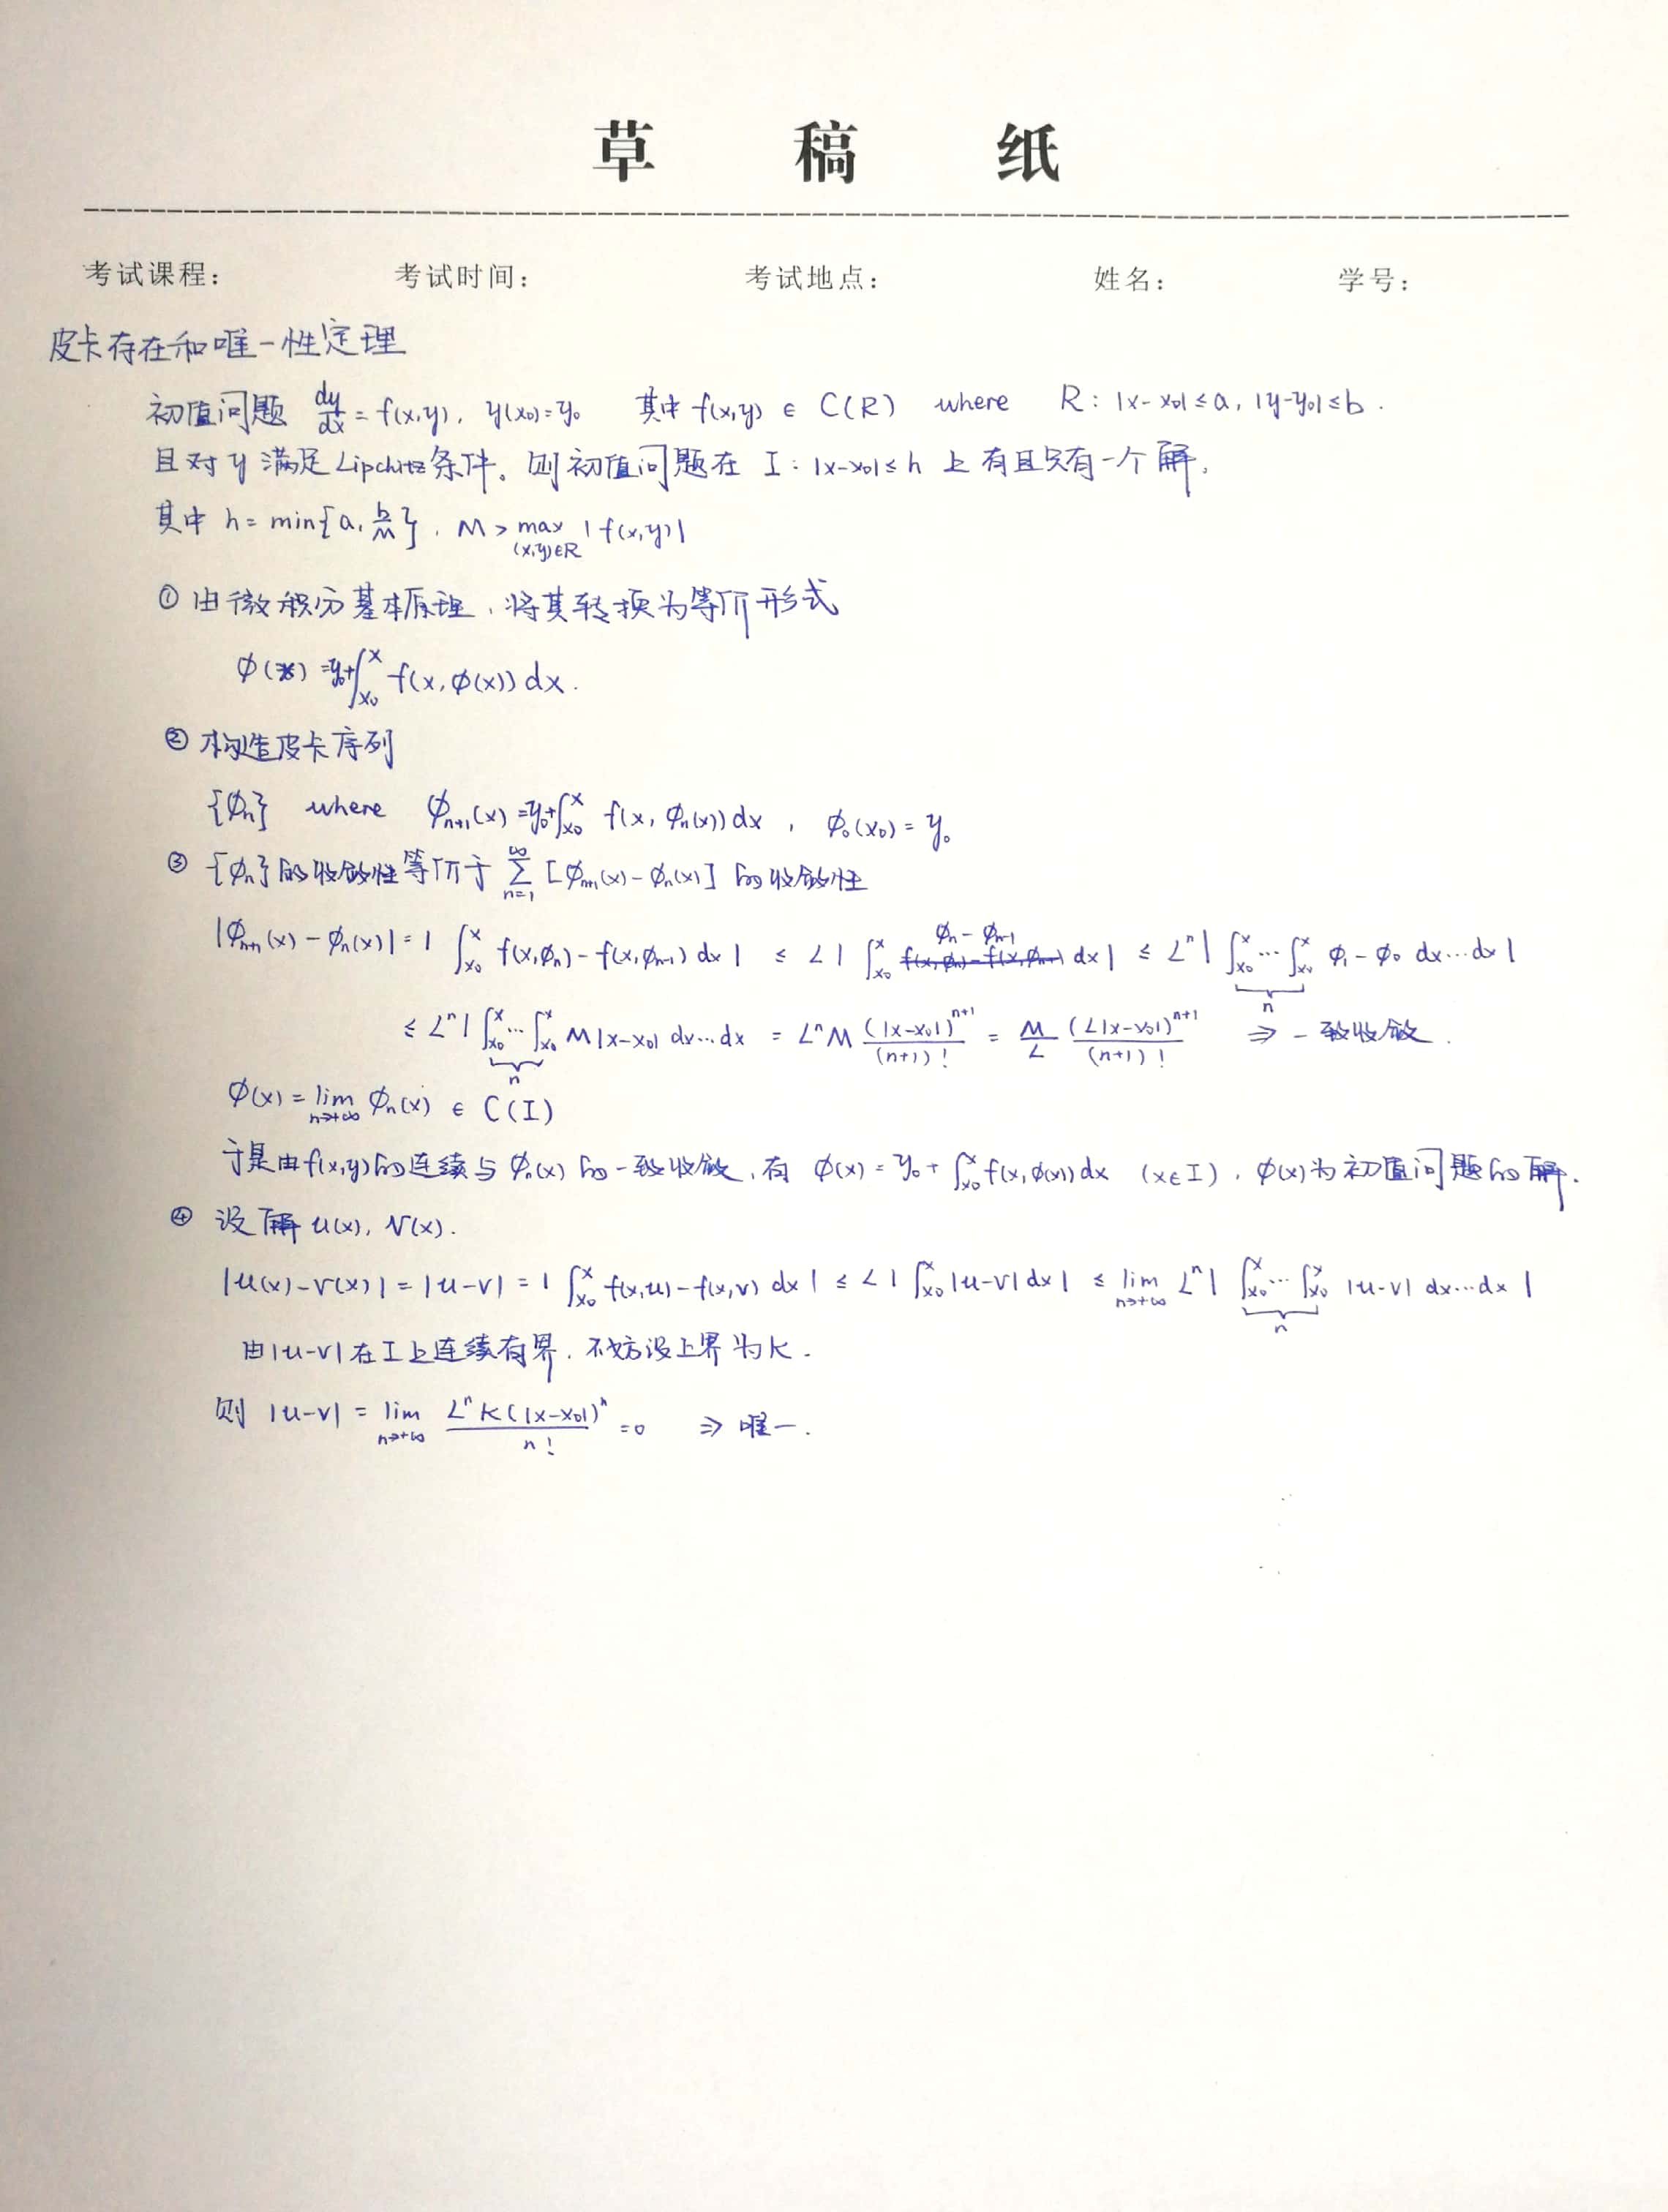 草 稿 纸
考试课程： 考试时间： 考试地点： 姓名： 学号：
皮卡存在和唯一性定理
初值问题 dy/dx = f(x,y), y(x₀)=y₀ 其中 f(x,y) ∈ C(R) where R: |x-x₀|≤a, |y-y₀|≤b.
且对 y 满足Lipchitz条件。则初值问题在 I: |x-x₀|≤h 上有且只有一个解.
其中 h = min{a, b/M}, M > max_{(x,y)∈R} |f(x,y)|
① 由微积分基本原理, 将其转换为等价形式
φ(x) = y₀+∫_{x₀}^{x} f(x,φ(x)) dx.
② 构造皮卡序列
{φₙ} where φₙ₊₁(x) = y₀+∫_{x₀}^{x} f(x, φₙ(x)) dx, φ₀(x₀) = y₀
③ {φₙ}的收敛性等价于 ∑_{n=1}^{∞} [φₙ₊₁(x) - φₙ(x)] 的收敛性
|φₙ₊₁(x) - φₙ(x)| = | ∫_{x₀}^{x} f(x,φₙ) - f(x,φₙ₋₁) dx | ≤ L | ∫_{x₀}^{x} φₙ - φₙ₋₁ dx | ≤ Lⁿ | ∫_{x₀}^{x} ⋯ ∫_{x₀}^{x} (n) φ₁ - φ₀ dx⋯dx |
≤ Lⁿ | ∫_{x₀}^{x} ⋯ ∫_{x₀}^{x} (n) M|x-x₀| dx⋯dx = LⁿM (|x-x₀|)ⁿ⁺¹/(n+1)! = M/L (L|x-x₀|)ⁿ⁺¹/(n+1)! ⇒ 一致收敛.
φ(x) = lim_{n→+∞} φₙ(x) ∈ C(I)
于是由f(x,y)的连续与 φₙ(x) 的一致收敛, 有 φ(x) = y₀ + ∫_{x₀}^{x} f(x,φ(x)) dx (x∈I), φ(x)为初值问题的解.
④ 设解 u(x), v(x).
|u(x)-v(x)| = |u-v| = | ∫_{x₀}^{x} f(x,u) - f(x,v) dx | ≤ L | ∫_{x₀}^{x} |u-v| dx | ≤ lim_{n→+∞} Lⁿ | ∫_{x₀}^{x} ⋯ ∫_{x₀}^{x} (n) |u-v| dx⋯dx |
由|u-v|在I上连续有界, 不妨设上界为K.
则 |u-v| = lim_{n→+∞} LⁿK(|x-x₀|)ⁿ/n! = 0 ⇒ 唯一.